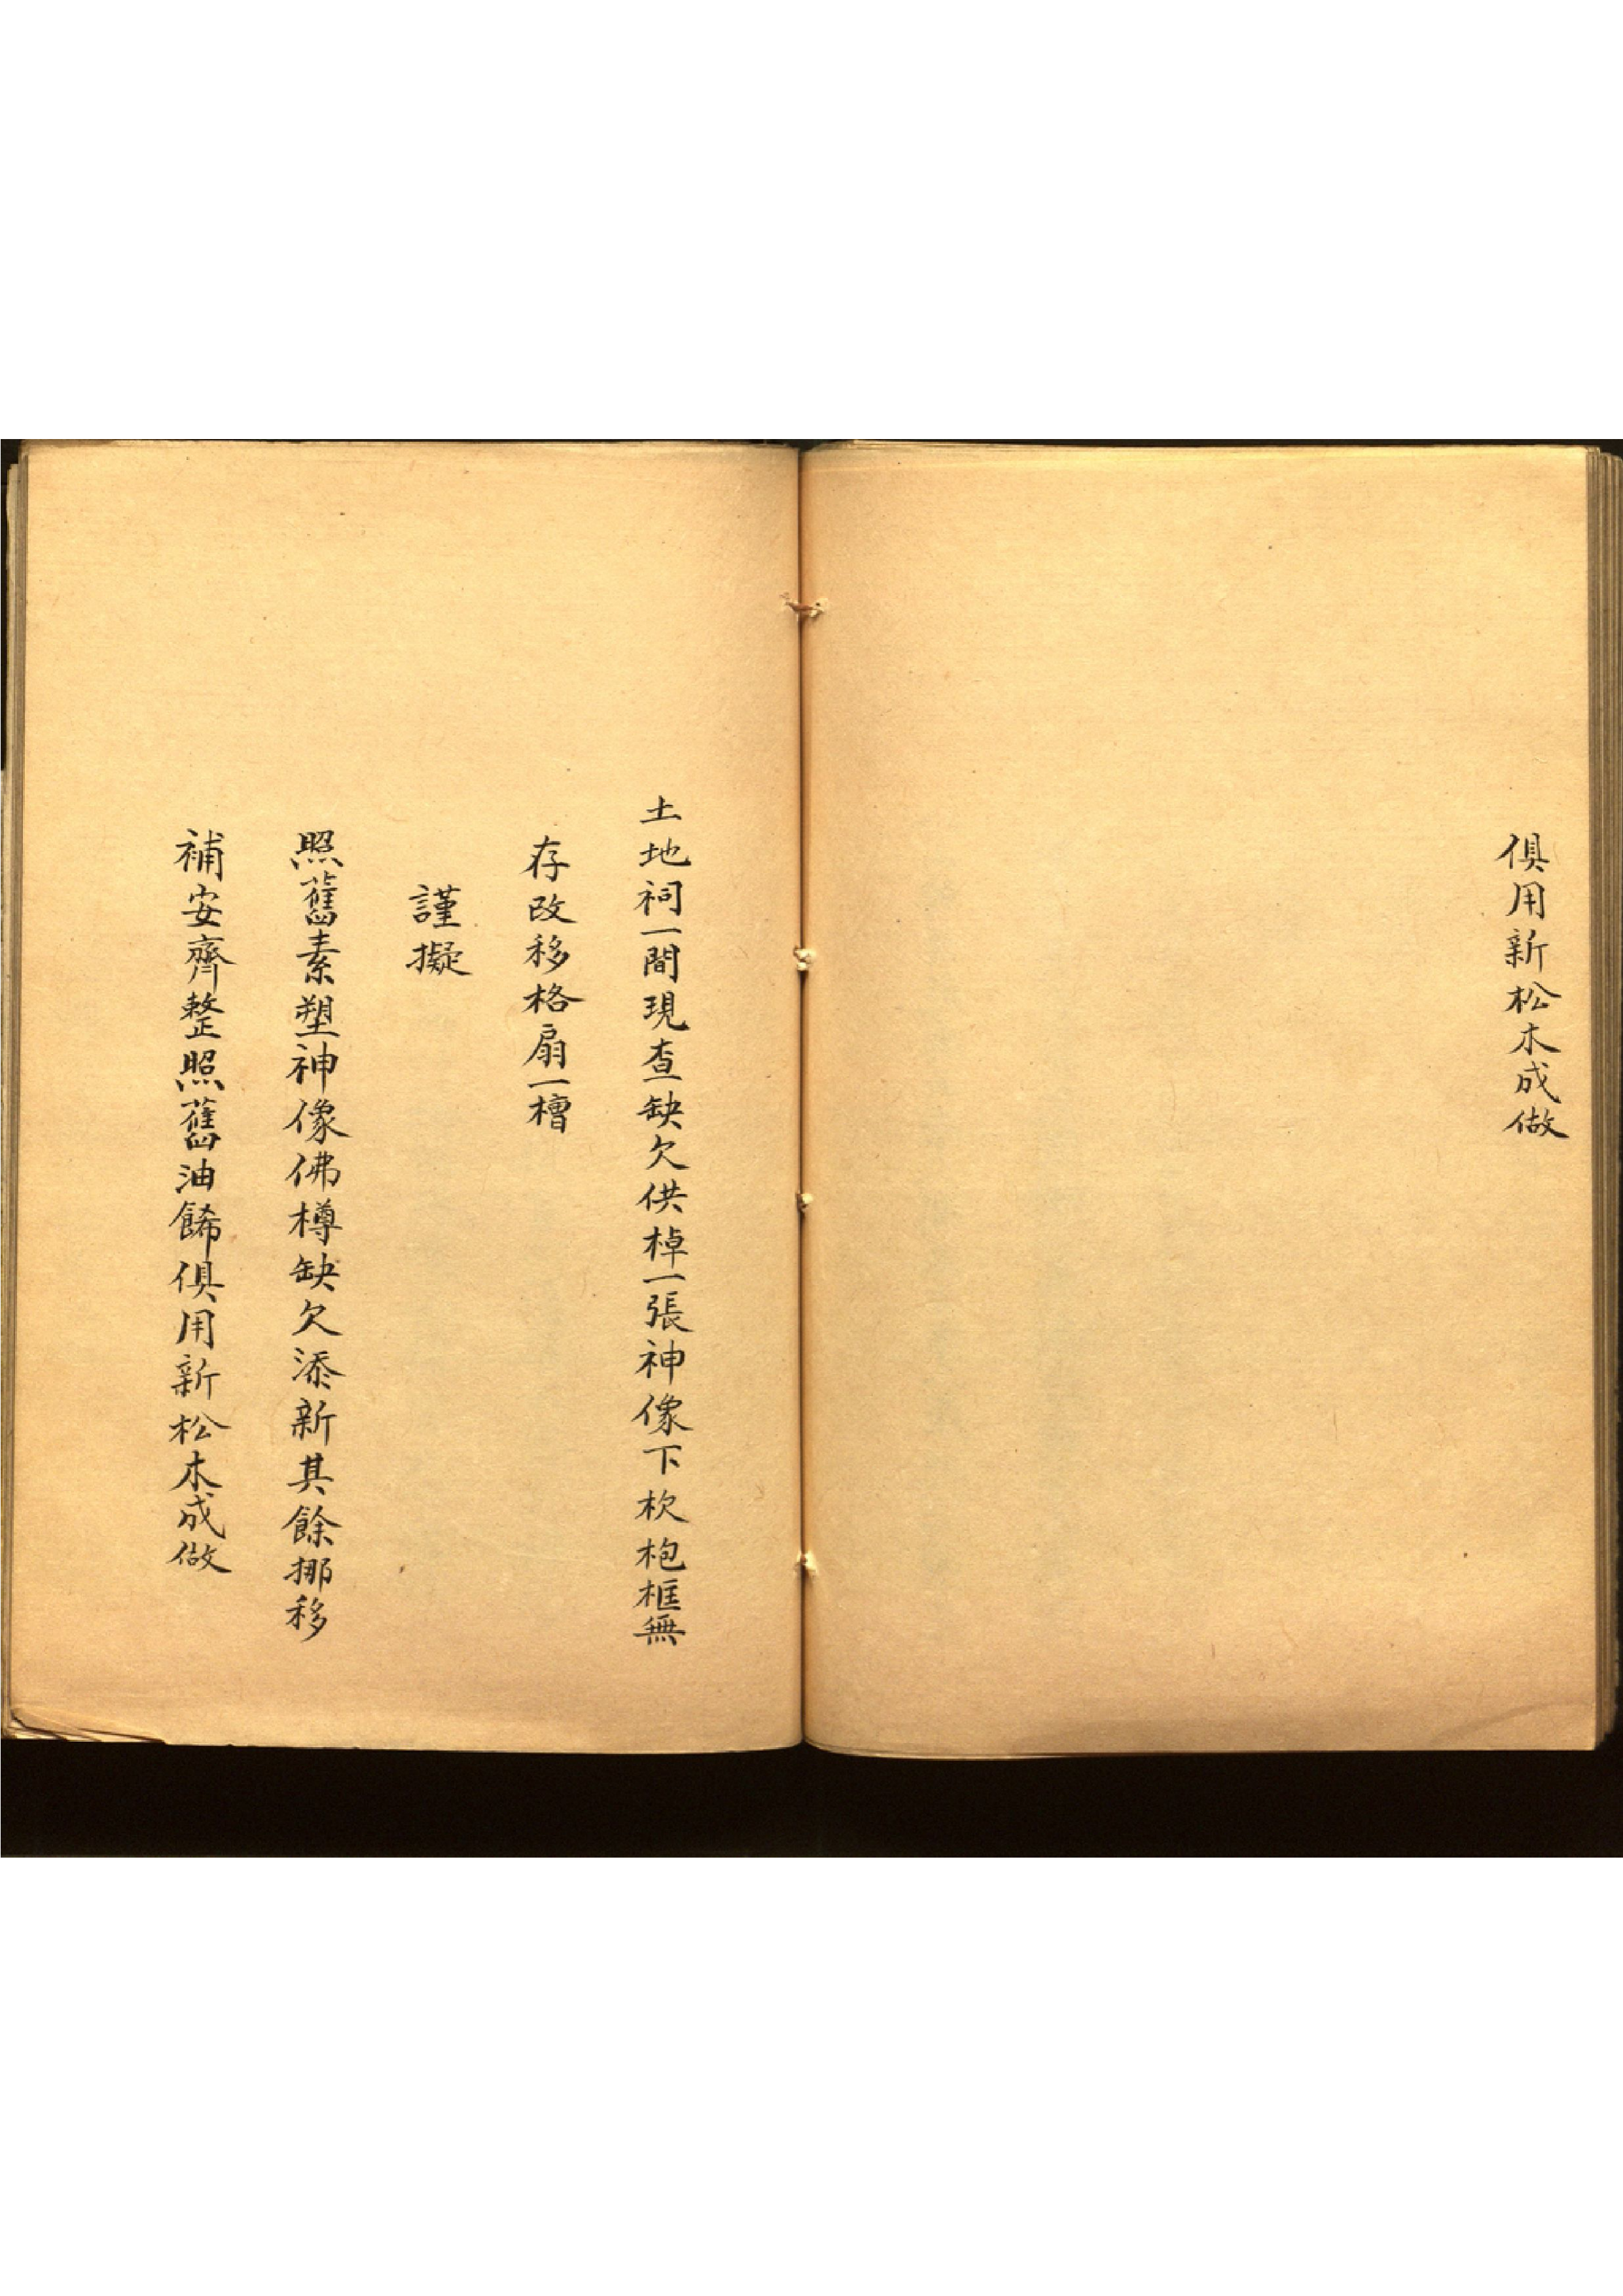 俱用新松木成做
土地祠一間現查缺欠供棹一張神像下杴枹框無
存改移格扇一槽
謹擬
照舊素塑神像佛樽缺欠添新其餘挪移
補安齊整照舊油餙俱用新松木成做